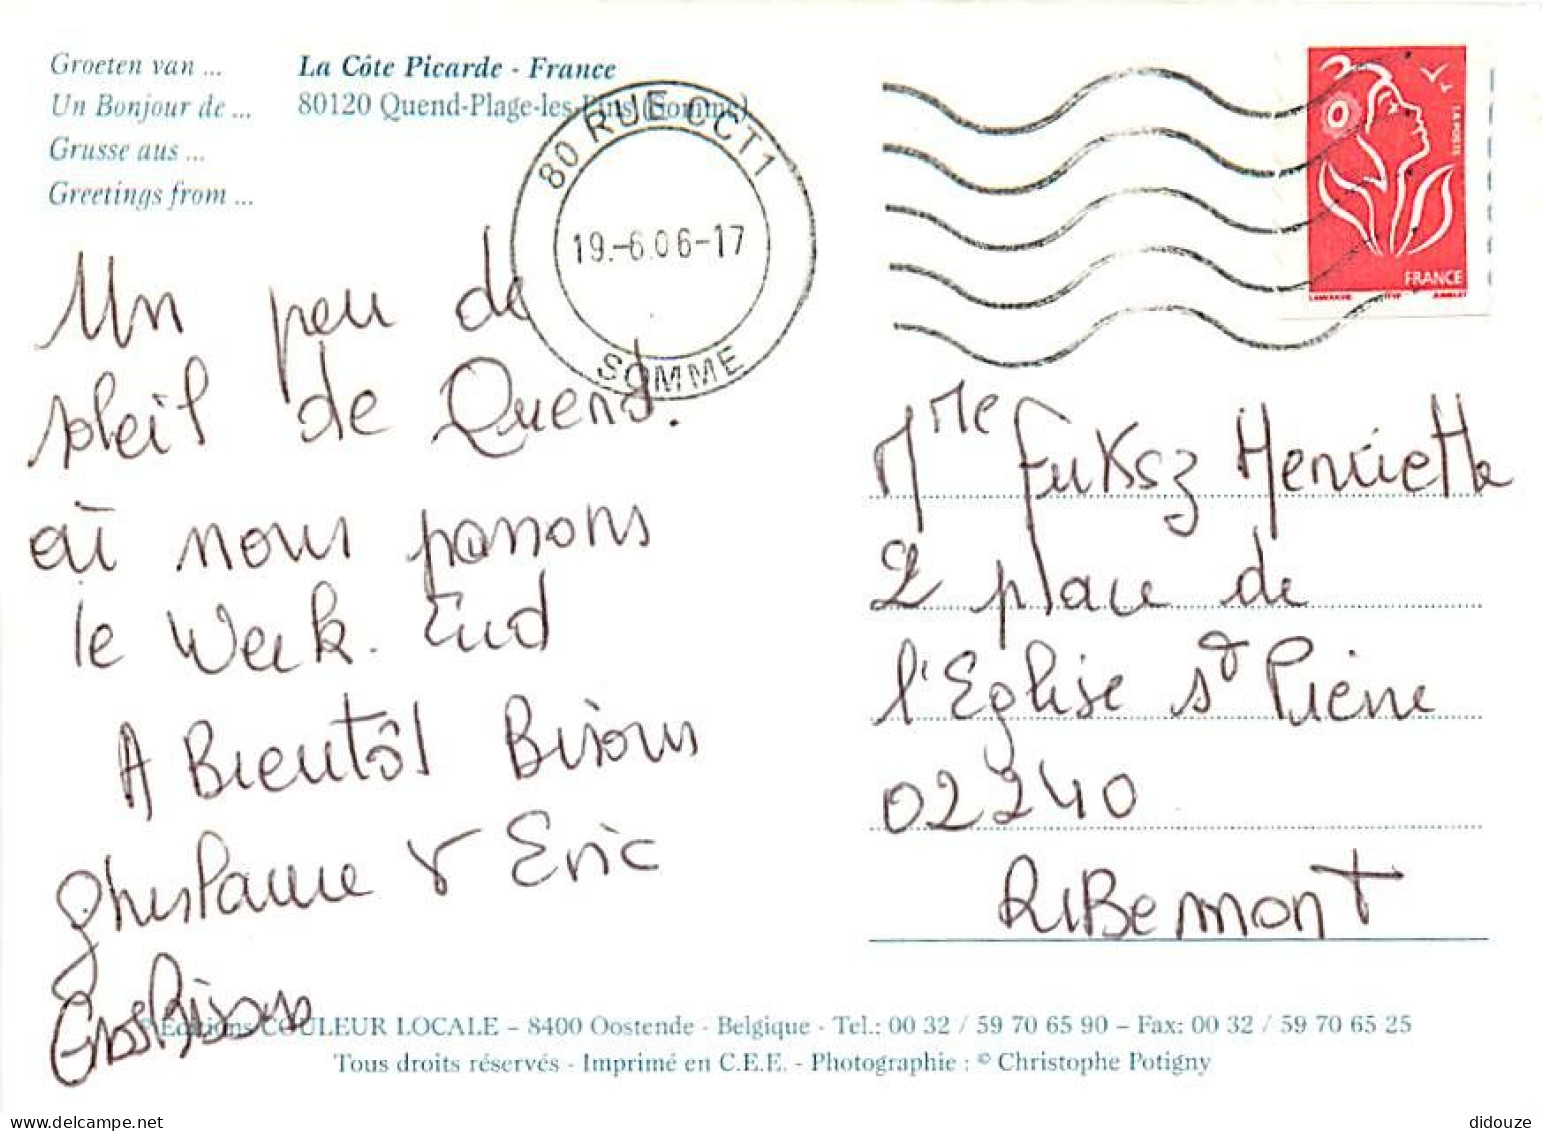 Groeten van ...
Un Bonjour de ...
Grusse aus ...
Greetings from ...
La Côte Picarde - France
80120 Quend-Plage-les-Pins (Somme)
80 RUE CCT1
19.-6.06-17
SOMME
LA POSTE
FRANCE
Un peu de
soleil de Quend.
où nous passons
le Week. End
A Bientôt Bisous
Ghislaine & Eric
Gros Bisous
Mme Fuksz Henriette
2 place de
l'Eglise St Pierre
02240
RiBemont
© Editions COULEUR LOCALE – 8400 Oostende - Belgique - Tel.: 00 32 / 59 70 65 90 – Fax: 00 32 / 59 70 65 25
Tous droits réservés - Imprimé en C.E.E. - Photographie : © Christophe Potigny
didouze